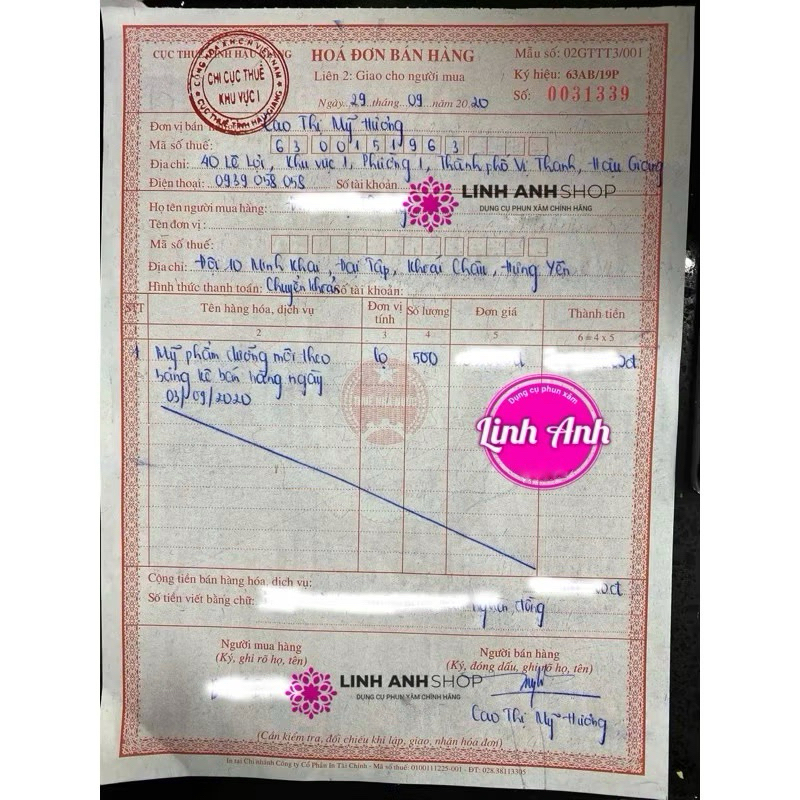 CỤC THUẾ TỈNH HẬU GIANG
HOÁ ĐƠN BÁN HÀNG
Mẫu số: 02GTTT3/001
Liên 2: Giao cho người mua
Ký hiệu: 63AB/19P
Ngày 29 tháng 09 năm 2020
Số: 0031339
CỘNG HÒA XHCN VIỆT NAM
CHI CỤC THUẾ
KHU VỰC I
CỤC THUẾ TỈNH HẬU GIANG
Đơn vị bán Cao Thị Mỹ Hương
Mã số thuế: 6300151963
Địa chỉ: 40 Lê Lợi, Khu vực 1, Phường 1, Thành phố Vị Thanh, Hậu Giang
Điện thoại: 0939 058 058 Số tài khoản
LINH ANH SHOP
DỤNG CỤ PHUN XĂM CHÍNH HÃNG
Họ tên người mua hàng:
Tên đơn vị:
Mã số thuế:
Địa chỉ: Đội 10 Minh Khai, Đại Tập, Khoái Châu, Hưng Yên
Hình thức thanh toán: Chuyển khoản số tài khoản:
STT Tên hàng hóa, dịch vụ Đơn vị tính Số lượng Đơn giá Thành tiền
2 3 4 5 6 = 4 x 5
1 Mỹ phẩm dưỡng môi theo lọ 500
bảng kê bán hàng ngày
03/09/2020
THUẾ NHÀ NƯỚC
Dụng cụ phun xăm
Linh Anh
Cộng tiền bán hàng hóa, dịch vụ:
Số tiền viết bằng chữ: nghìn đồng
Người mua hàng
(Ký, ghi rõ họ, tên)
Người bán hàng
(Ký, đóng dấu, ghi rõ họ, tên)
LINH ANH SHOP
DỤNG CỤ PHUN XĂM CHÍNH HÃNG
Cao Thị Mỹ Hương
(Cần kiểm tra, đối chiếu khi lập, giao, nhận hóa đơn)
In tại Chi nhánh Công ty Cổ Phần In Tài Chính - Mã số thuế: 0100111225-001 - ĐT: 028.38113305